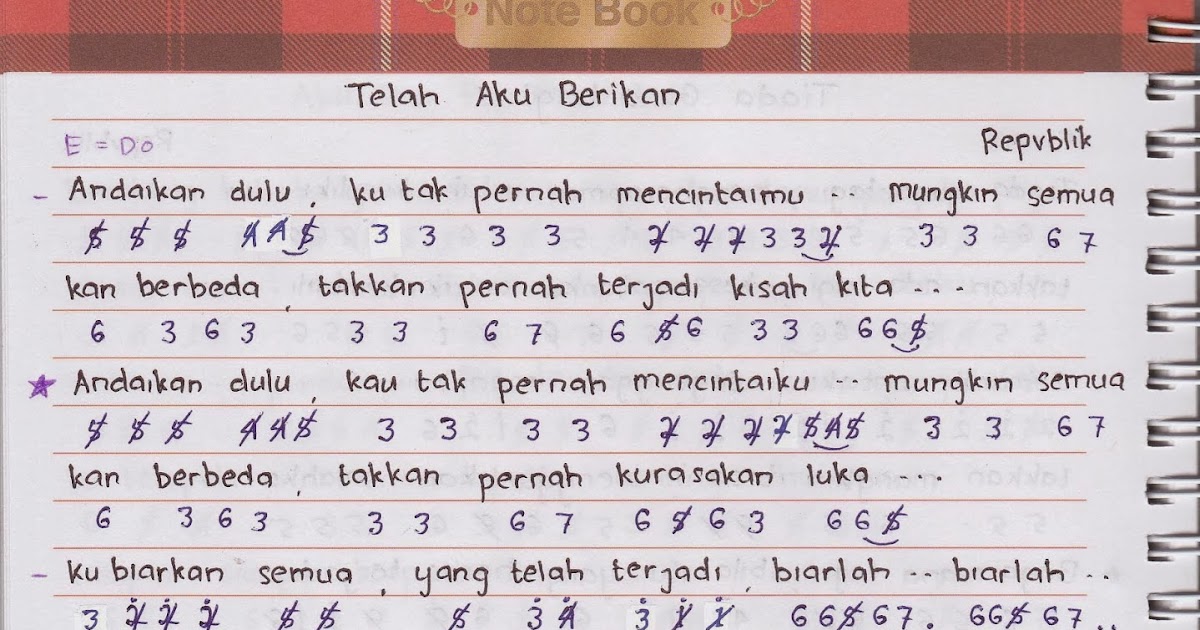 Note Book
Telah Aku Berikan
E = Do
Repvblik
- Andaikan dulu, ku tak pernah mencintaimu ... mungkin semua
5̸ 5̸ 5̸ 4̸ 4̸ 5̸ 3 3 3 3 2̸ 2̸ 2̸ 3 3 2̸ 3 3 6 7
kan berbeda, takkan pernah terjadi kisah kita ....
6 3 6 3 3 3 6 7 6 5̸ 6 3 3 6 6 5̸
★ Andaikan dulu, kau tak pernah mencintaiku ... mungkin semua
5̸ 5̸ 5̸ 4̸ 4̸ 5̸ 3 3 3 3 2̸ 2̸ 2̸ 2̸ 5̸ 4̸ 5̸ 3 3 6 7
kan berbeda, takkan pernah kurasakan luka ....
6 3 6 3 3 3 6 7 6 5̸ 6 3 6 6 5̸
- ku biarkan semua, yang telah terjadi, biarlah .. biarlah ..
3 2̸̇ 2̸̇ 2̸̇ 5̸ 5̸ 5̸ 3̇ 4̸̇ 3̇ 1̸̇ 1̸̇ 6 6 5̸ 6 7. 6 6 5̸ 6 7..